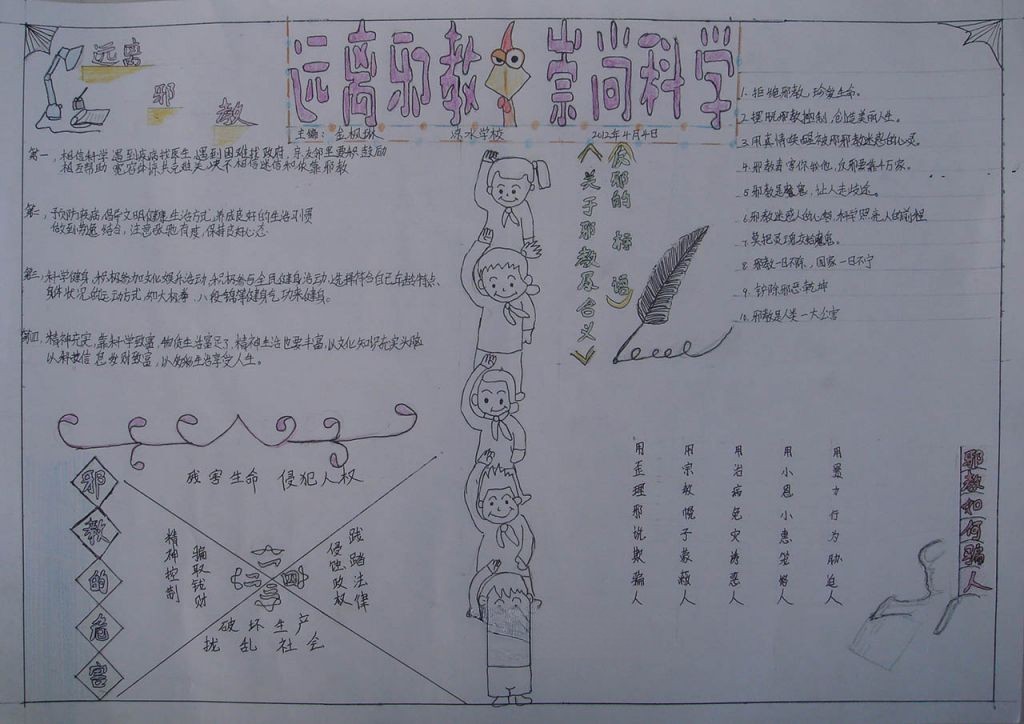 远离邪教 崇尚科学
主编：金枫琳 流水学校 2012年4月4日
远离
邪
教
第一、相信科学 遇到疾病找医生，遇到困难找政府，亲友邻里要积极鼓励
相互帮助 宽容体谅共克难关，决不相信迷信和依靠邪教
第二、预防疾病，倡导文明健康生活方式，养成良好的生活习惯
做到劳逸结合，注意张弛有度，保持良好心态
第三、科学健身，积极参加文化娱乐活动，积极参与全民健身活动，选择符合自己年龄特点、
身体状况的运动方式，如太极拳、八段锦等健身气功来健身。
第四、精神充实，靠科学致富，物质生活富足了，精神生活也要丰富，以文化知识充实头脑
以科技信息发财致富，以多彩生活享受人生。
关于邪教及含义
反邪的标语
1. 拒绝邪教，珍爱生命。
2. 摆脱邪教控制，创造美丽人生。
3. 用真情唤醒被邪教迷惑的心灵。
4. 邪教害你我他，反邪要靠千万家。
5. 邪教是魔窟，让人走歧途。
6. 邪教迷惑人的心想，科学照亮人的前程
7. 莫把灵魂交给魔鬼。
8. 邪教一日不除，国家一日不宁
9. 铲除邪恶乾坤
10. 邪教是人类一大公害
邪教的危害
残害生命 侵犯人权
精神控制
骗取钱财
一
二
三
四
侵蚀政权
践踏法律
破坏生产
扰乱社会
用歪理邪说欺骗人
用宗教幌子蒙蔽人
用治病免灾诱惑人
用小恩小惠笼络人
用暴力行为胁迫人
邪教如何骗人